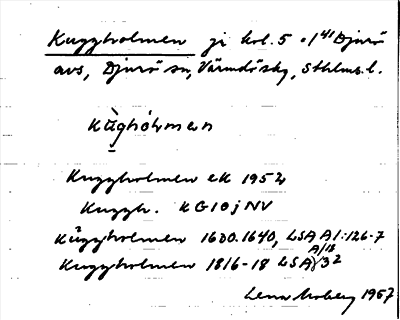 Kuggholmen gi kol. 5 · 1/41 Djurö
avs, Djurö sn, Värmdö skg, Sthlms l.
kùghólmen
Kuggholmen ek 1952
Kuggh. KG10jNV
Kuggholmen 1600.1640, LSA A1:126-7
Kuggholmen 1816-18 LSA A/18 32
1957